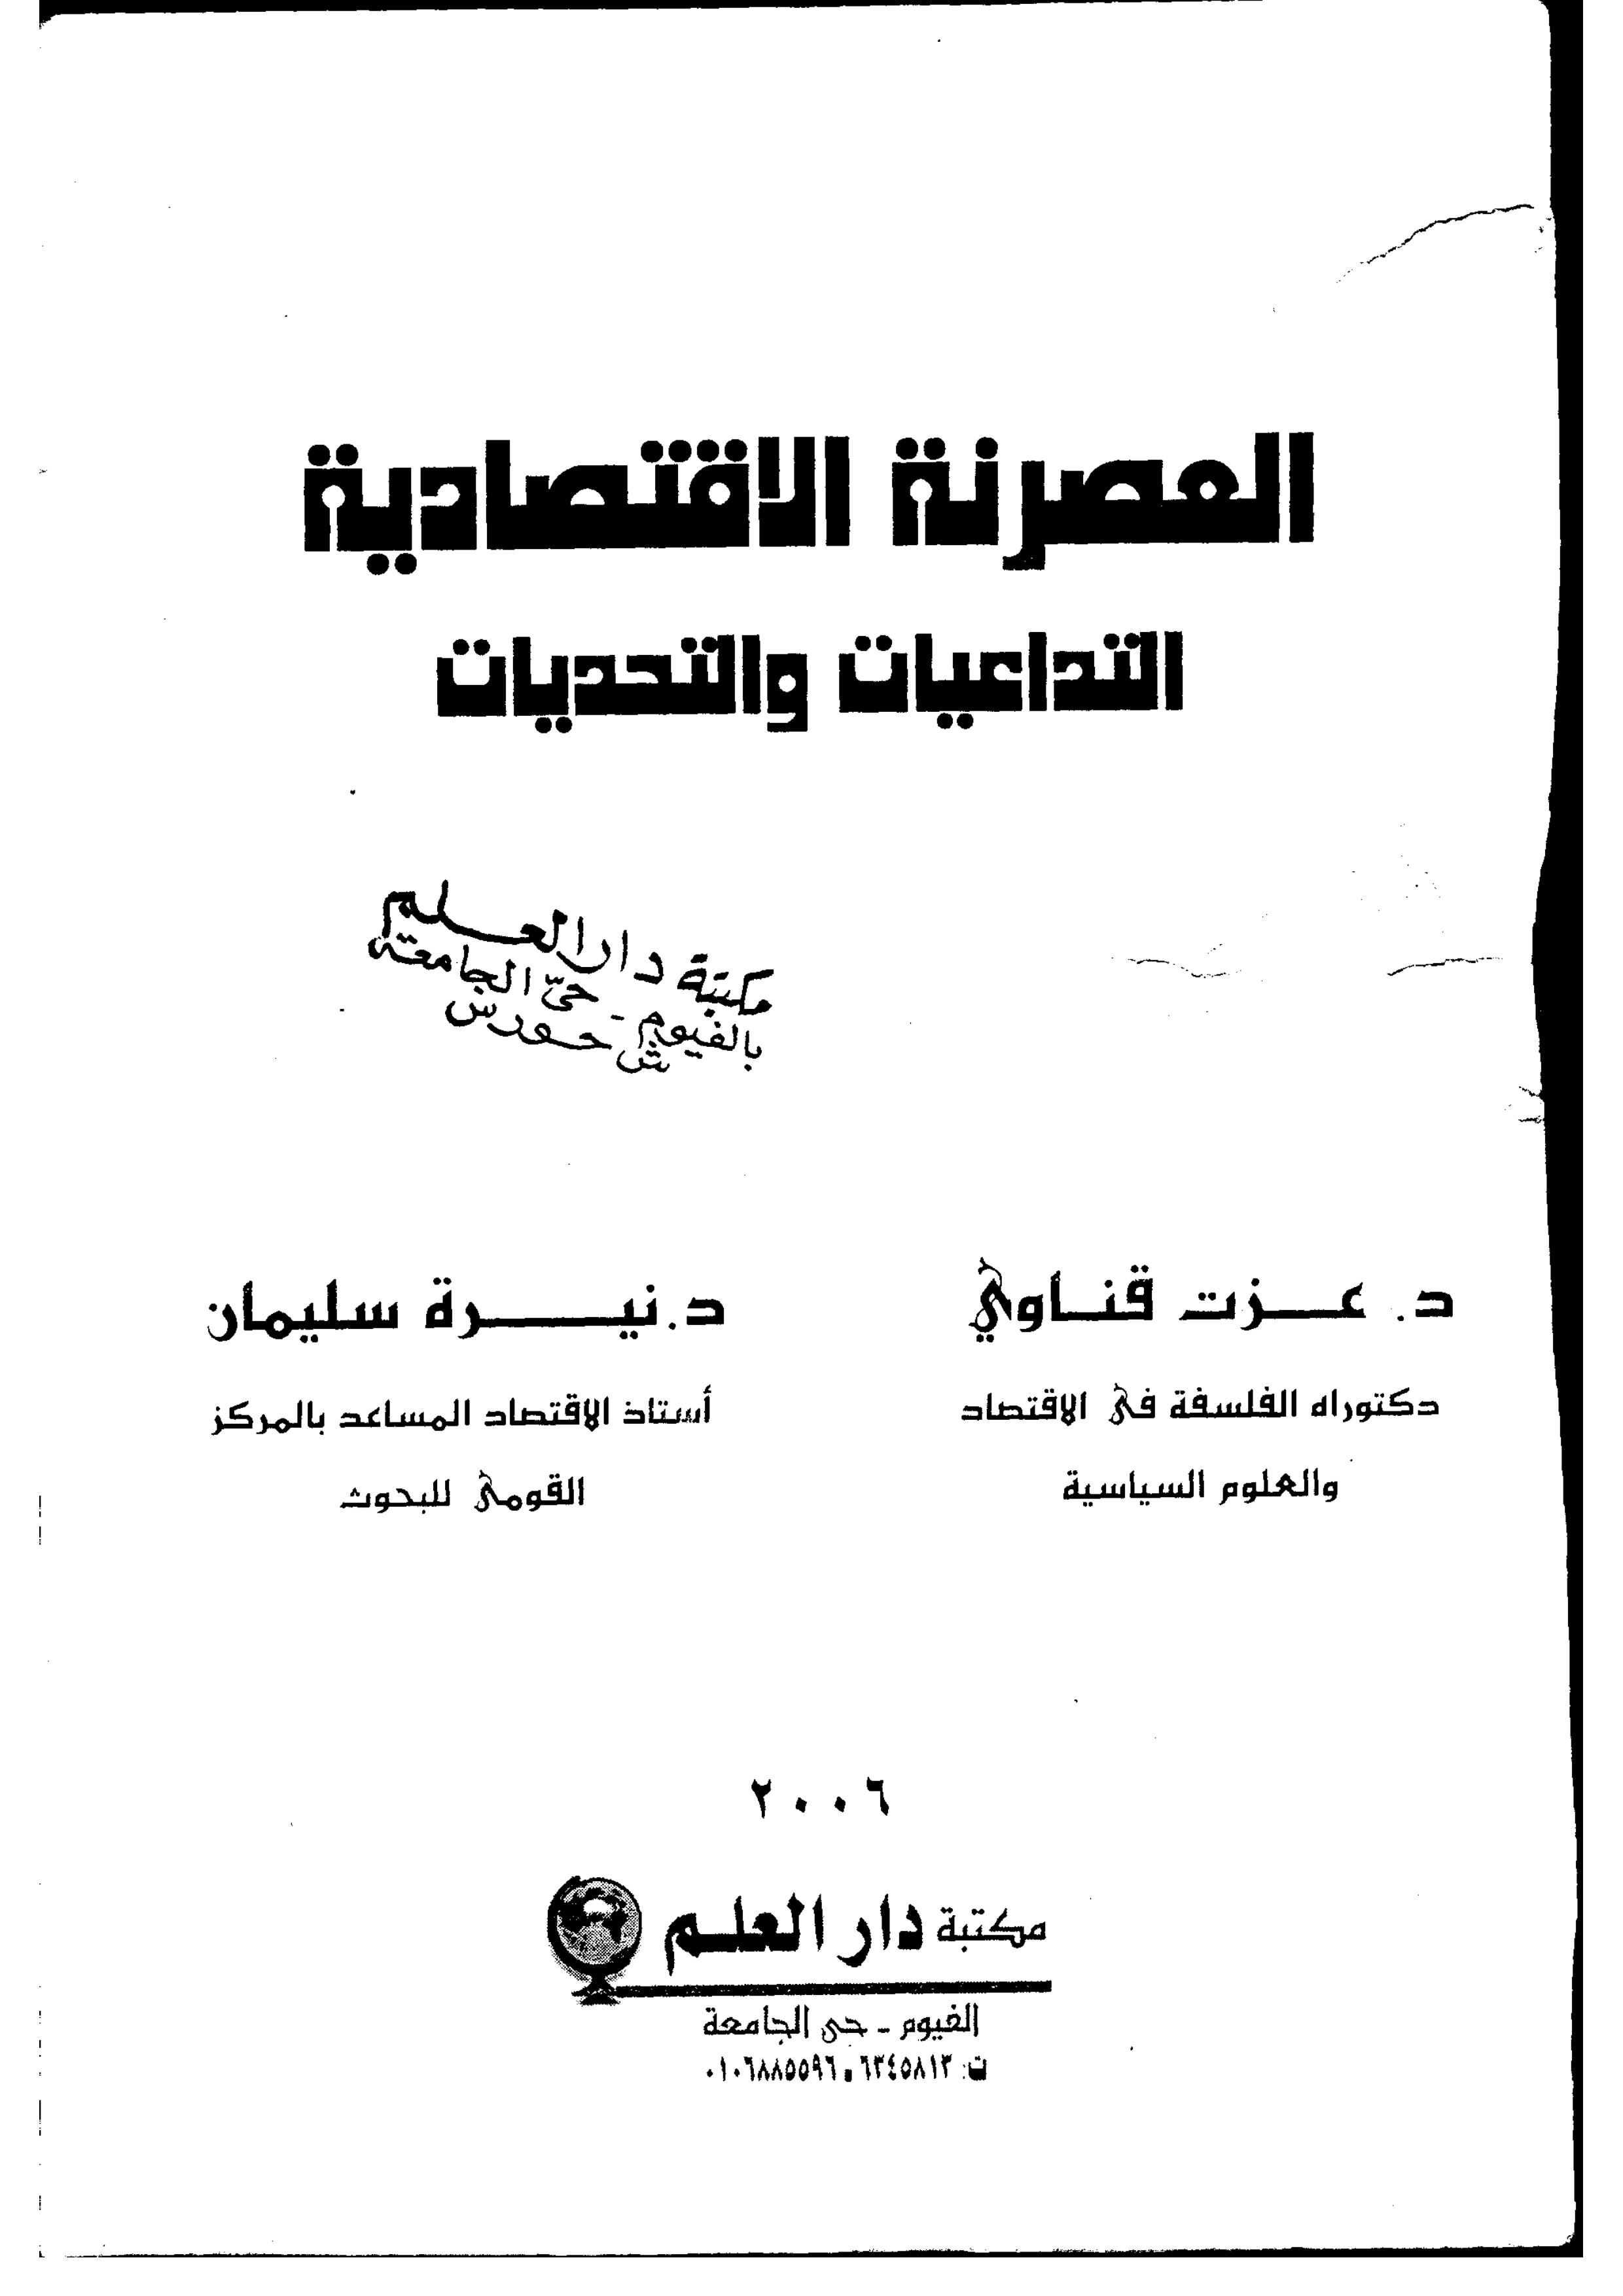 العصرنة الاقتصادية
التداعيات والتحديات
مكتبة دار العلم
بالفيوم - حىّ الجامعة
ش حورس
د. عزت قناوي
دكتوراه الفلسفة فى الاقتصاد
والعلوم السياسية
د.نيرة سليمان
أستاذ الاقتصاد المساعد بالمركز
القومى للبحوث
٢٠٠٦
مكتبة دار العلم
الفيوم - حى الجامعة
ت: ٦٣٤٥٨١٣ ، ٠١٠٦٨٨٥٥٩٦